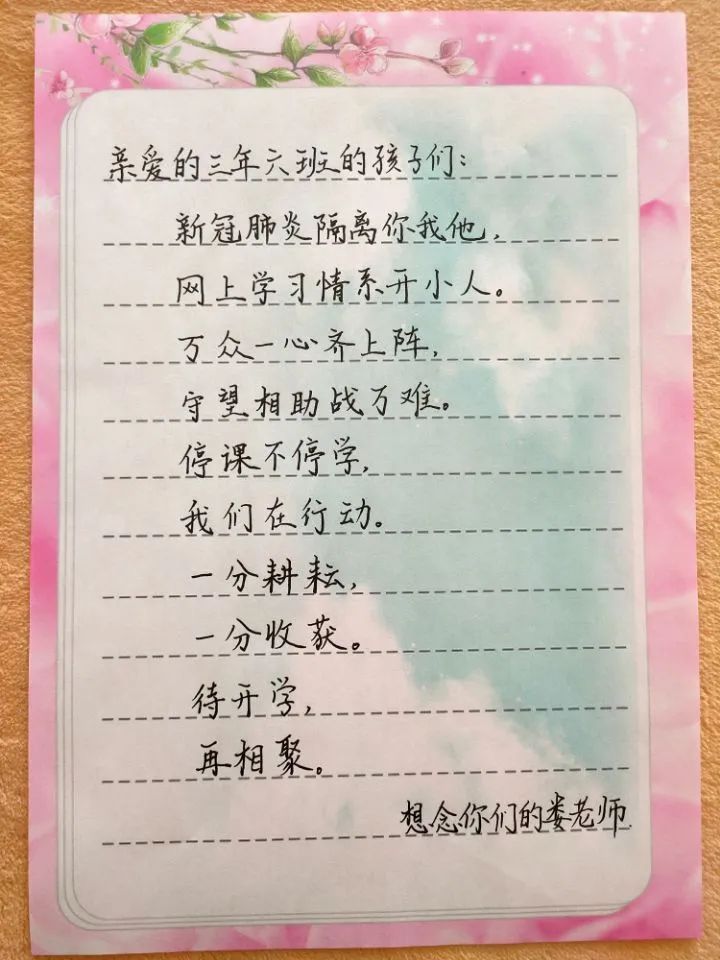 亲爱的三年六班的孩子们：
新冠肺炎隔离你我他，
网上学习情系开小人。
万众一心齐上阵，
守望相助战万难。
停课不停学，
我们在行动。
一分耕耘，
一分收获。
待开学，
再相聚。
想念你们的娄老师